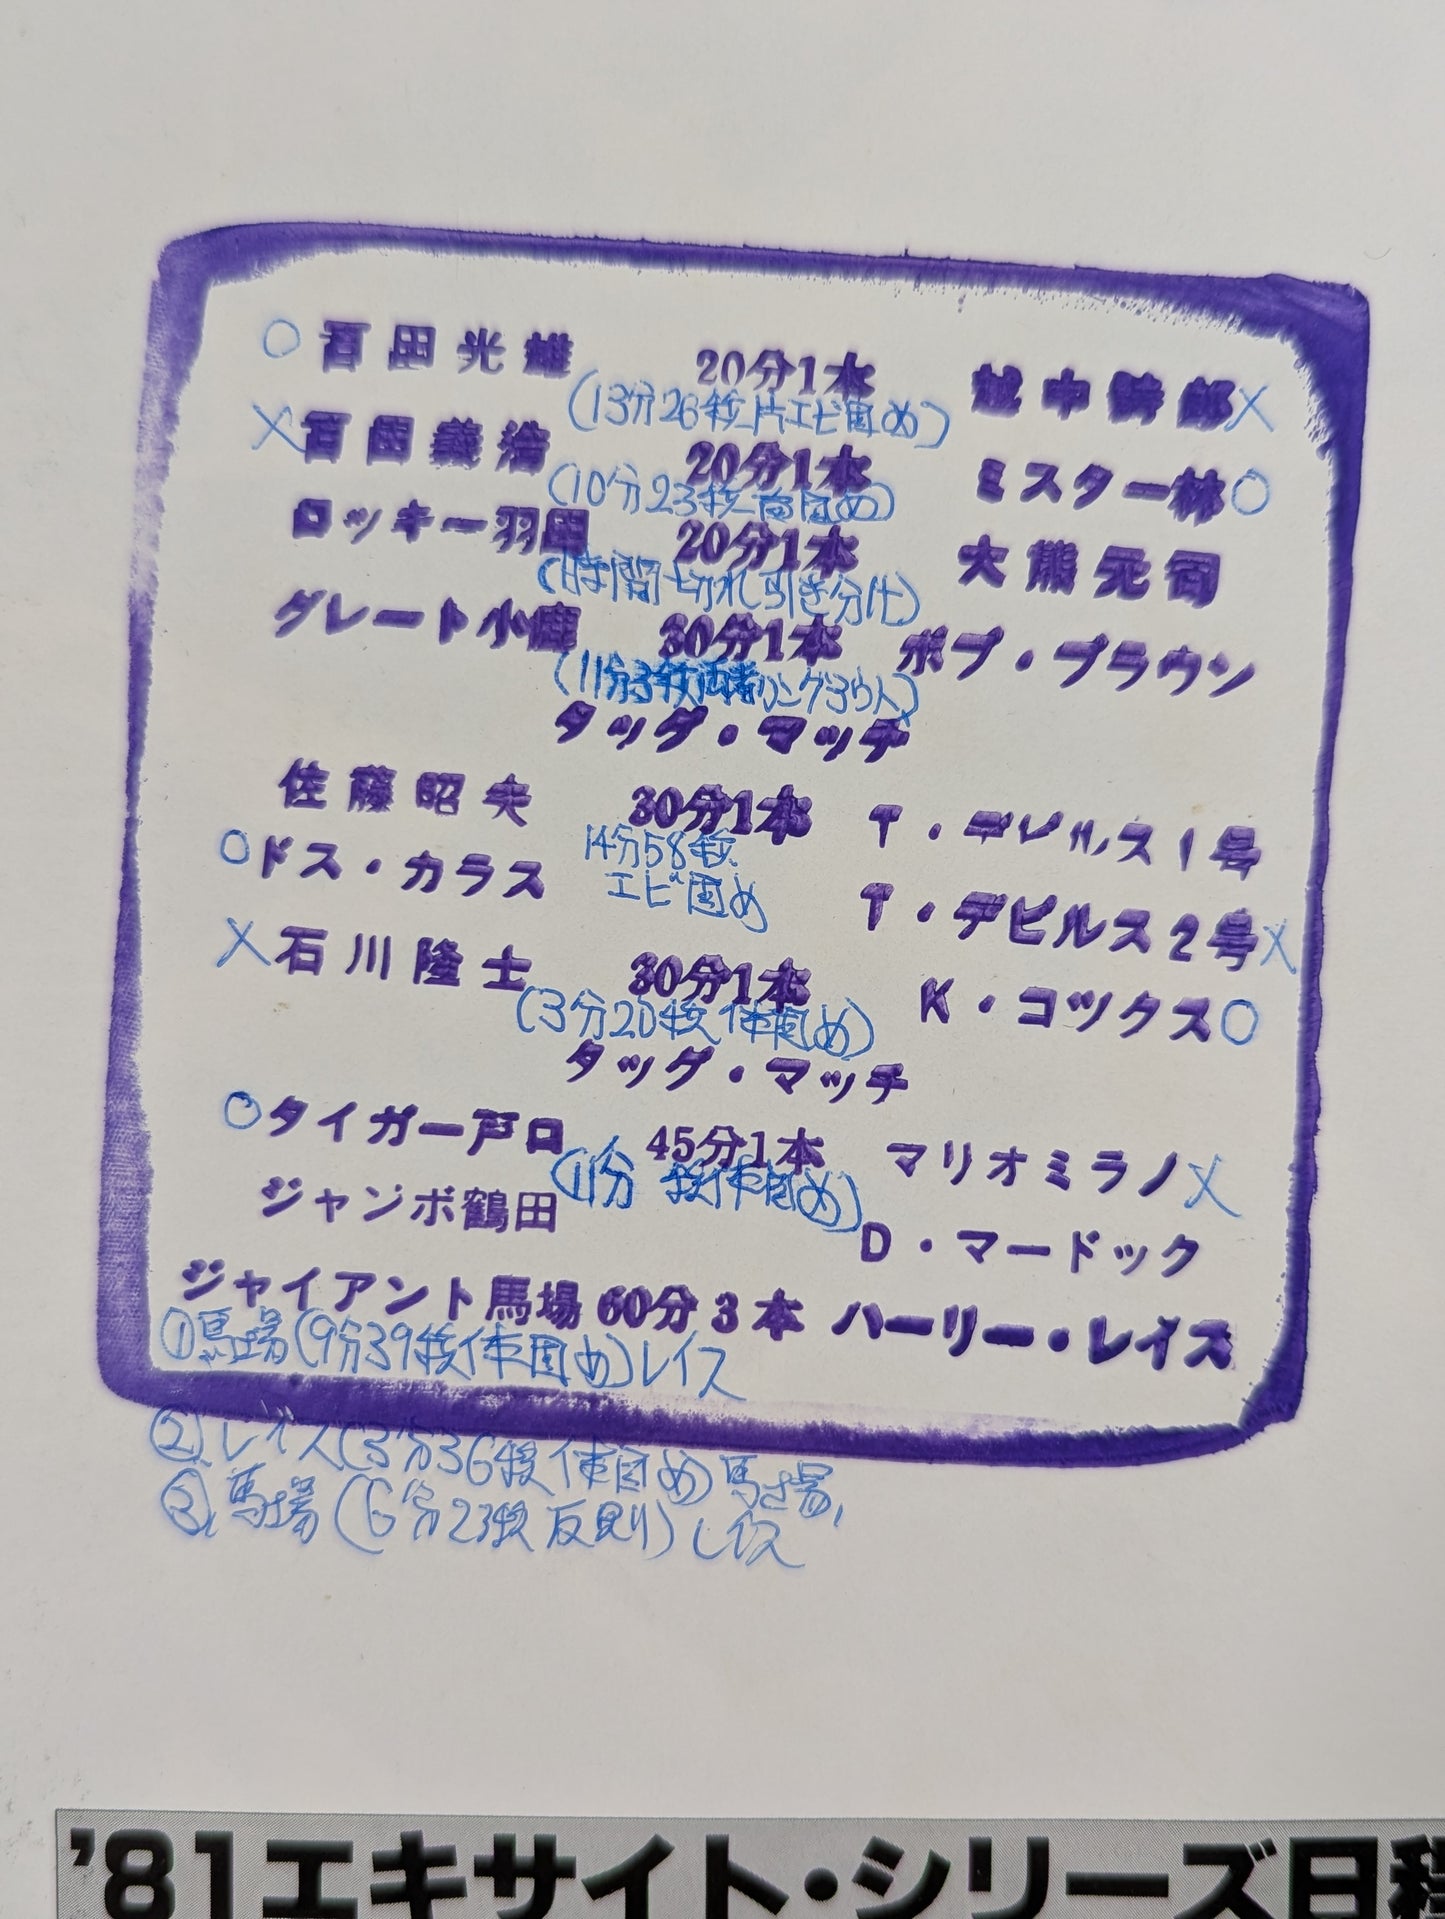 ○百田光雄 20分1本 越中詩郎×
(13分26秒片エビ固め)
×百田義浩 20分1本 ミスター林○
(10分23秒首固め)
ロッキー羽田 20分1本 大熊元司
(時間切れ引き分け)
グレート小鹿 30分1本 ボブ・ブラウン
(11分3秒両者リングアウト)
タッグ・マッチ
佐藤昭夫 30分1本 T・デビルス1号
14分58秒
エビ固め
○ドス・カラス T・デビルス2号×
×石川隆士 30分1本 K・コックス○
(3分20秒体固め)
タッグ・マッチ
○タイガー戸口 45分1本 マリオミラノ×
(11分 秒体固め)
ジャンボ鶴田 D・マードック
ジャイアント馬場 60分3本 ハーリー・レイス
①馬場(9分39秒体固め)レイス
②レイス(3分36秒体固め)馬場
③馬場(6分23秒反則)レイス
'81エキサイト・シリーズ日程